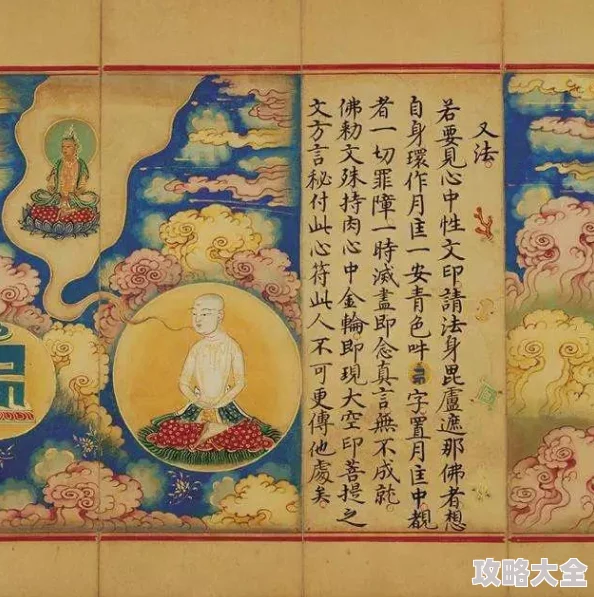 又法
若要見心中性文印請法身毘盧遮那佛者想
自身環作月匡一安青色吽字置月匡中觀
者一切罪障一時滅盡即念真言無不成就
佛勅文殊持肉心中金輪即現大空印菩提之
文方言秘付此心符此人不可更傳他處矣
攻略大全